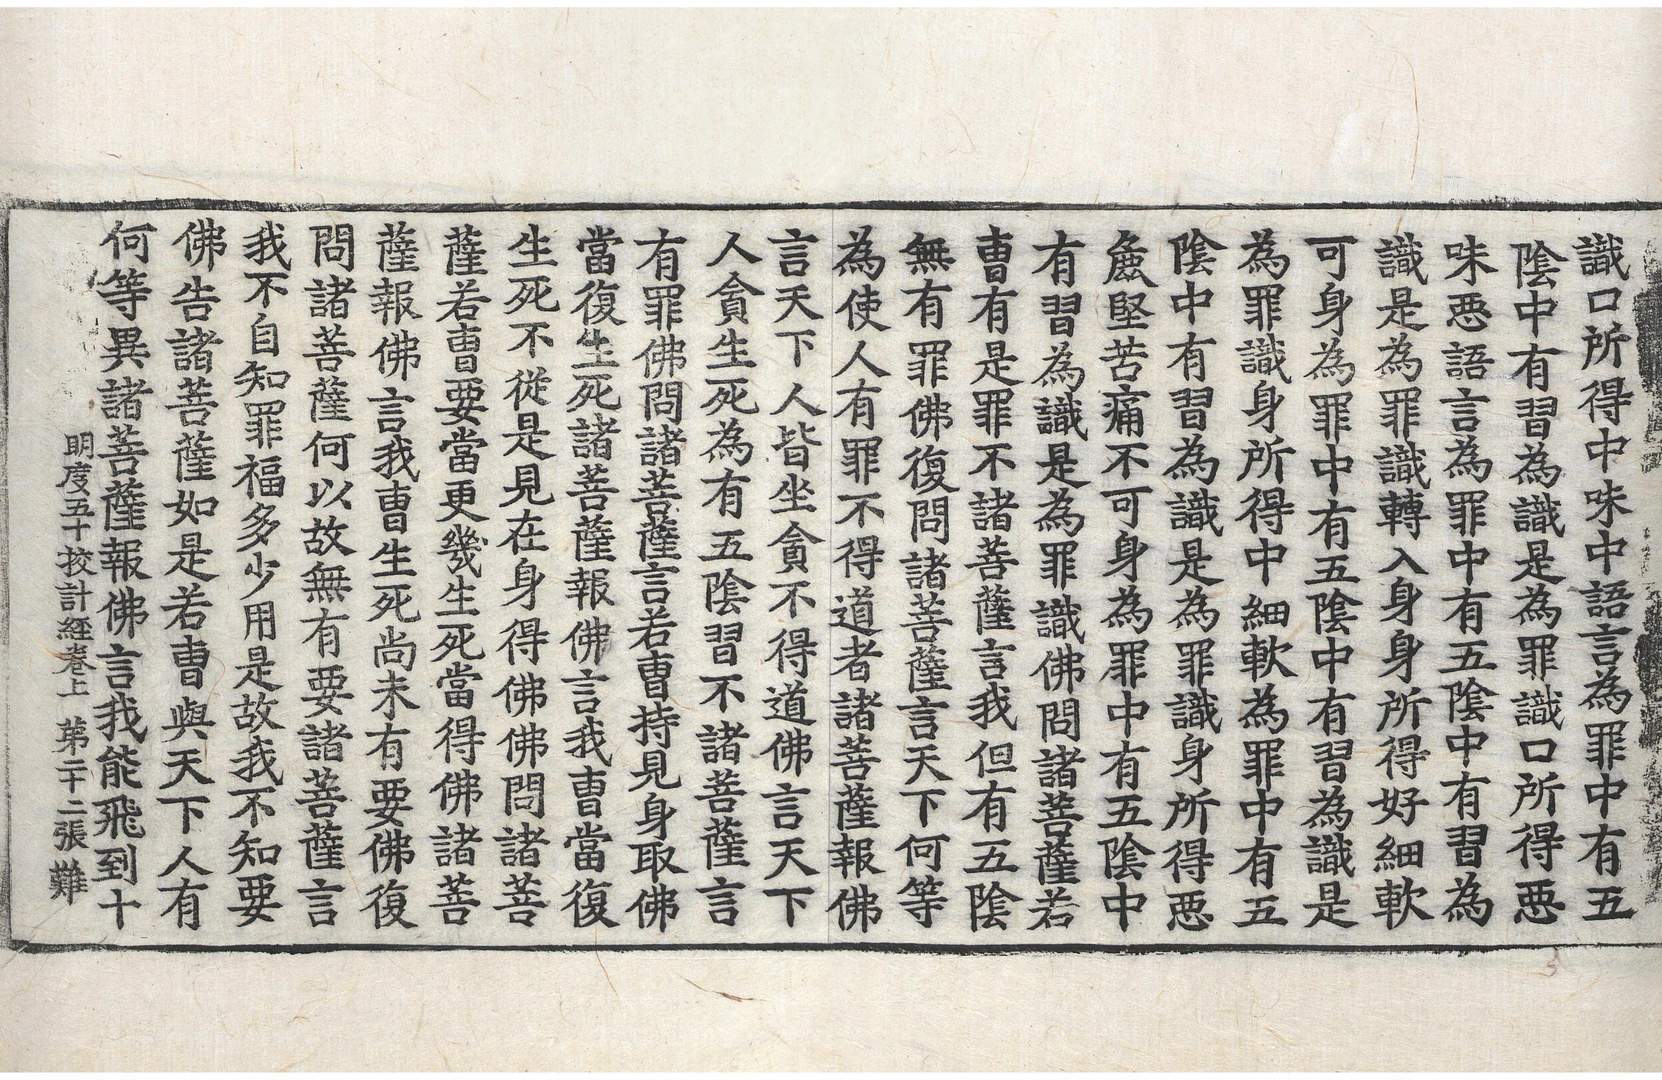 識口所得中味中語言為罪中有五
陰中有習為識是為罪識口所得惡
味惡語言為罪中有五陰中有習為
識是為罪識轉入身身所得好細軟
可身為罪中有五陰中有習為識是
為罪識身所得中細軟為罪中有五
陰中有習為識是為罪識身所得惡
麁堅苦痛不可身為罪中有五陰中
有習為識是為罪識佛問諸菩薩若
曹有是罪不諸菩薩言我但有五陰
無有罪佛復問諸菩薩言天下何等
為使人有罪不得道者諸菩薩報佛
言天下人皆坐貪不得道佛言天下
人貪生死為有五陰習不諸菩薩言
有罪佛問諸菩薩言若曹持見身取佛
當復生死諸菩薩報佛言我曹當復
生死不從是見在身得佛佛問諸菩
薩若曹要當更幾生死當得佛諸菩
薩報佛言我曹生死尚未有要佛復
問諸菩薩何以故無有要諸菩薩言
我不自知罪福多少用是故我不知要
佛告諸菩薩如是若曹與天下人有
何等異諸菩薩報佛言我能飛到十
明度五十挍計經卷上 苐二十二張 難